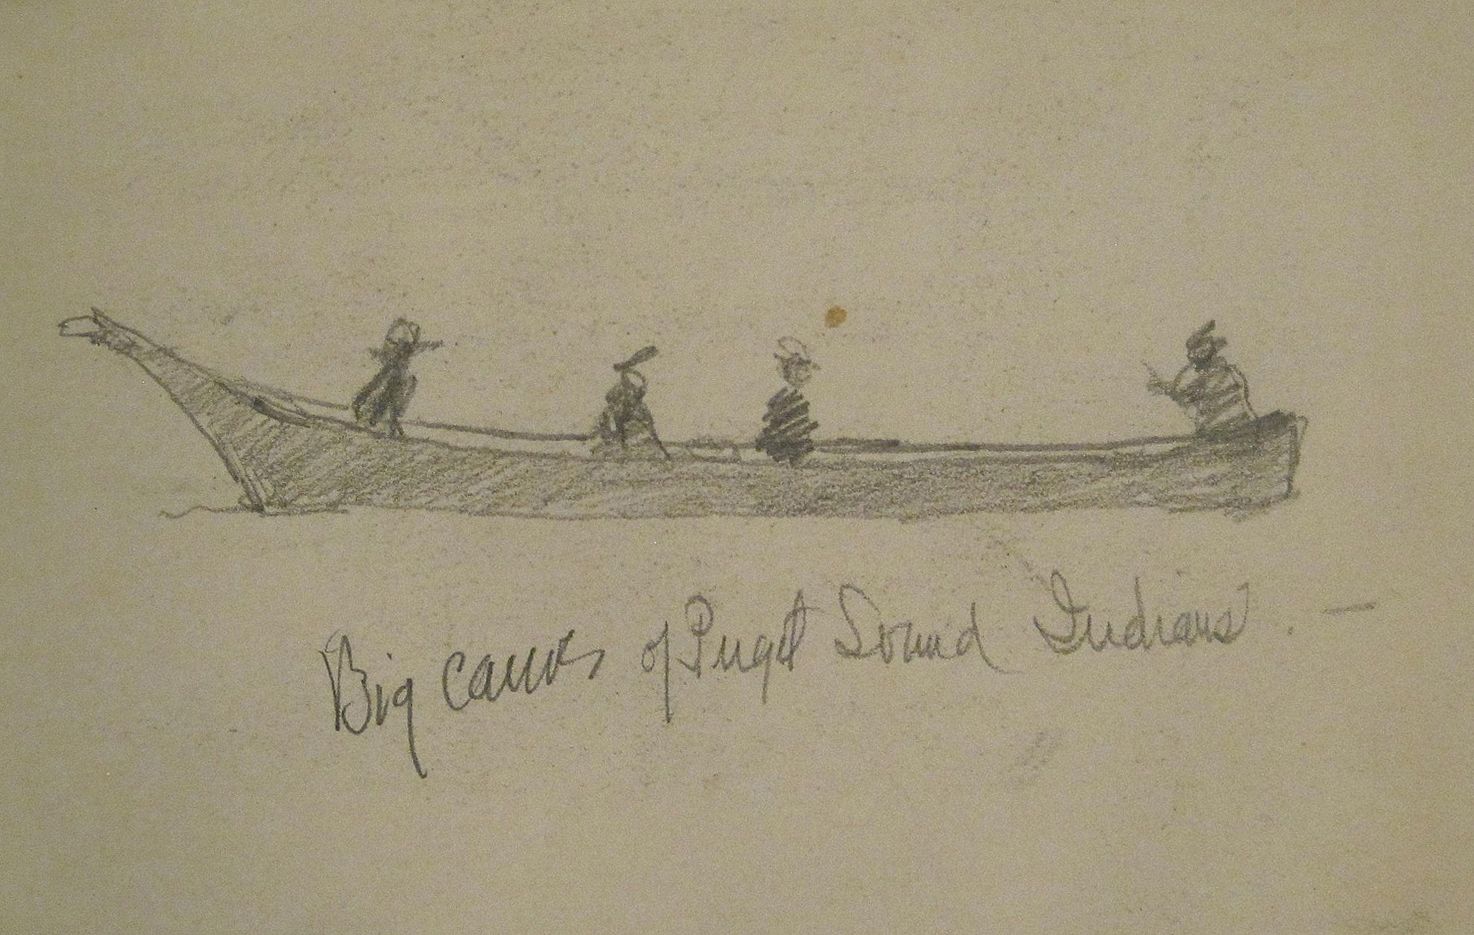 Big canoes of Puget Sound Indians . —